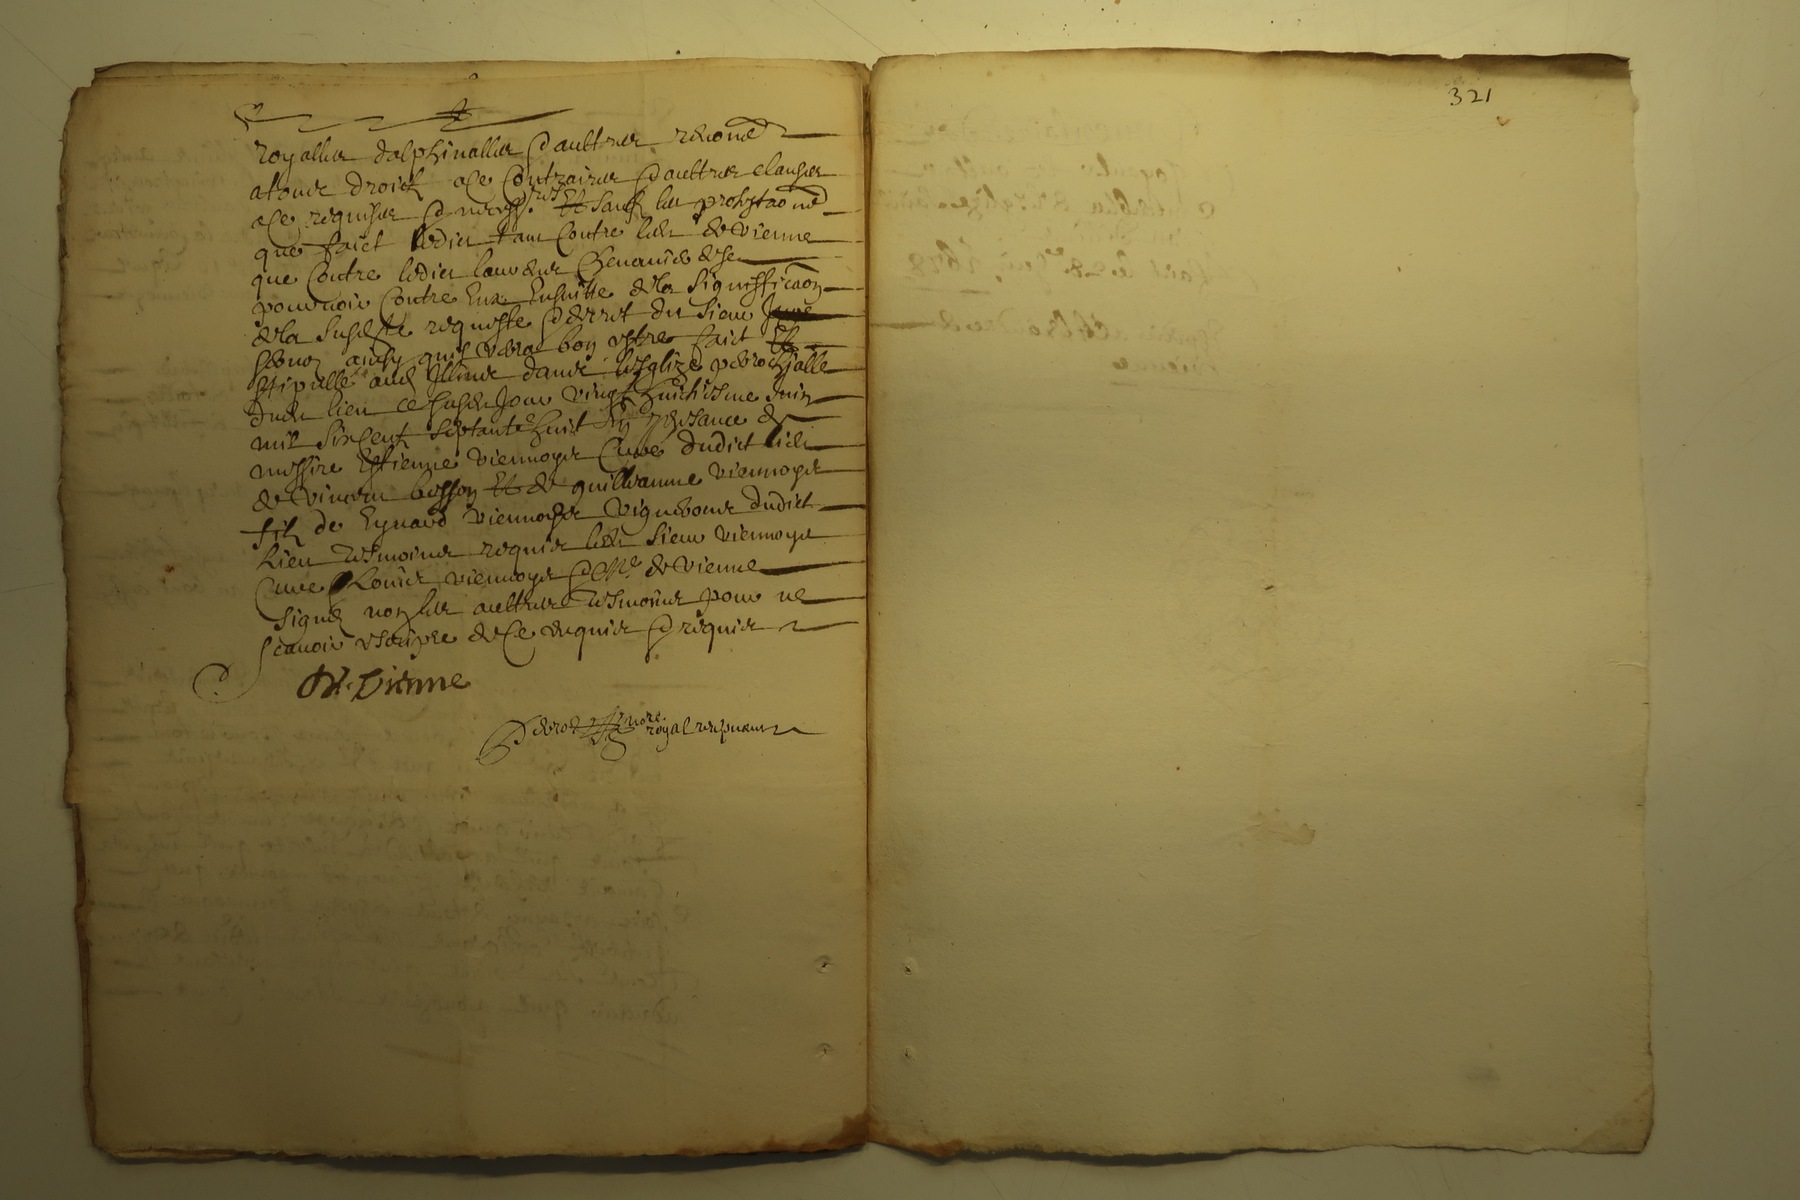 royalles dalphinalles & aultres renonc
a tout droict a ce contraires & aultres clauses
a ce requises & necess.res Et sauf les protestaõns
que faict ledict tant contre led de Vienne
que contre ledict de se
pourvoir contre Eux Ensuitte de la Signifficaõn
de la Susd requeste & decret du Sieur Juge
ainsy quil verra bon estre faict Et
stipullé aud dans lesglize parrochialle
dud lieu ce susd Jour vingt huictiesme Juin
mil six cent septante huit En presance de
messire Estienne Viennoys Curé dudict lieu
de Vincent bosson Et de guilliaume Viennoys
filz de Eynard Viennoys Vigneron dudict
Lieu tesmoins requis led Sieur Viennoys
Curé Louis Viennoys & Me de Vienne
Signés non les aultres tesmoins pour ne
scavoir escripre de ce enquis & requis
De Vienne
nore royal recepvant
321